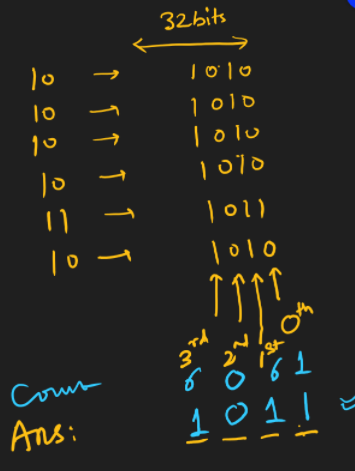 32bits
10 → 1010
10 → 1010
10 → 1010
10 → 1010
11 → 1011
10 → 1010
3rd 2nd 1st 0th
6 0 6 1
Ans: 1 0 1 1